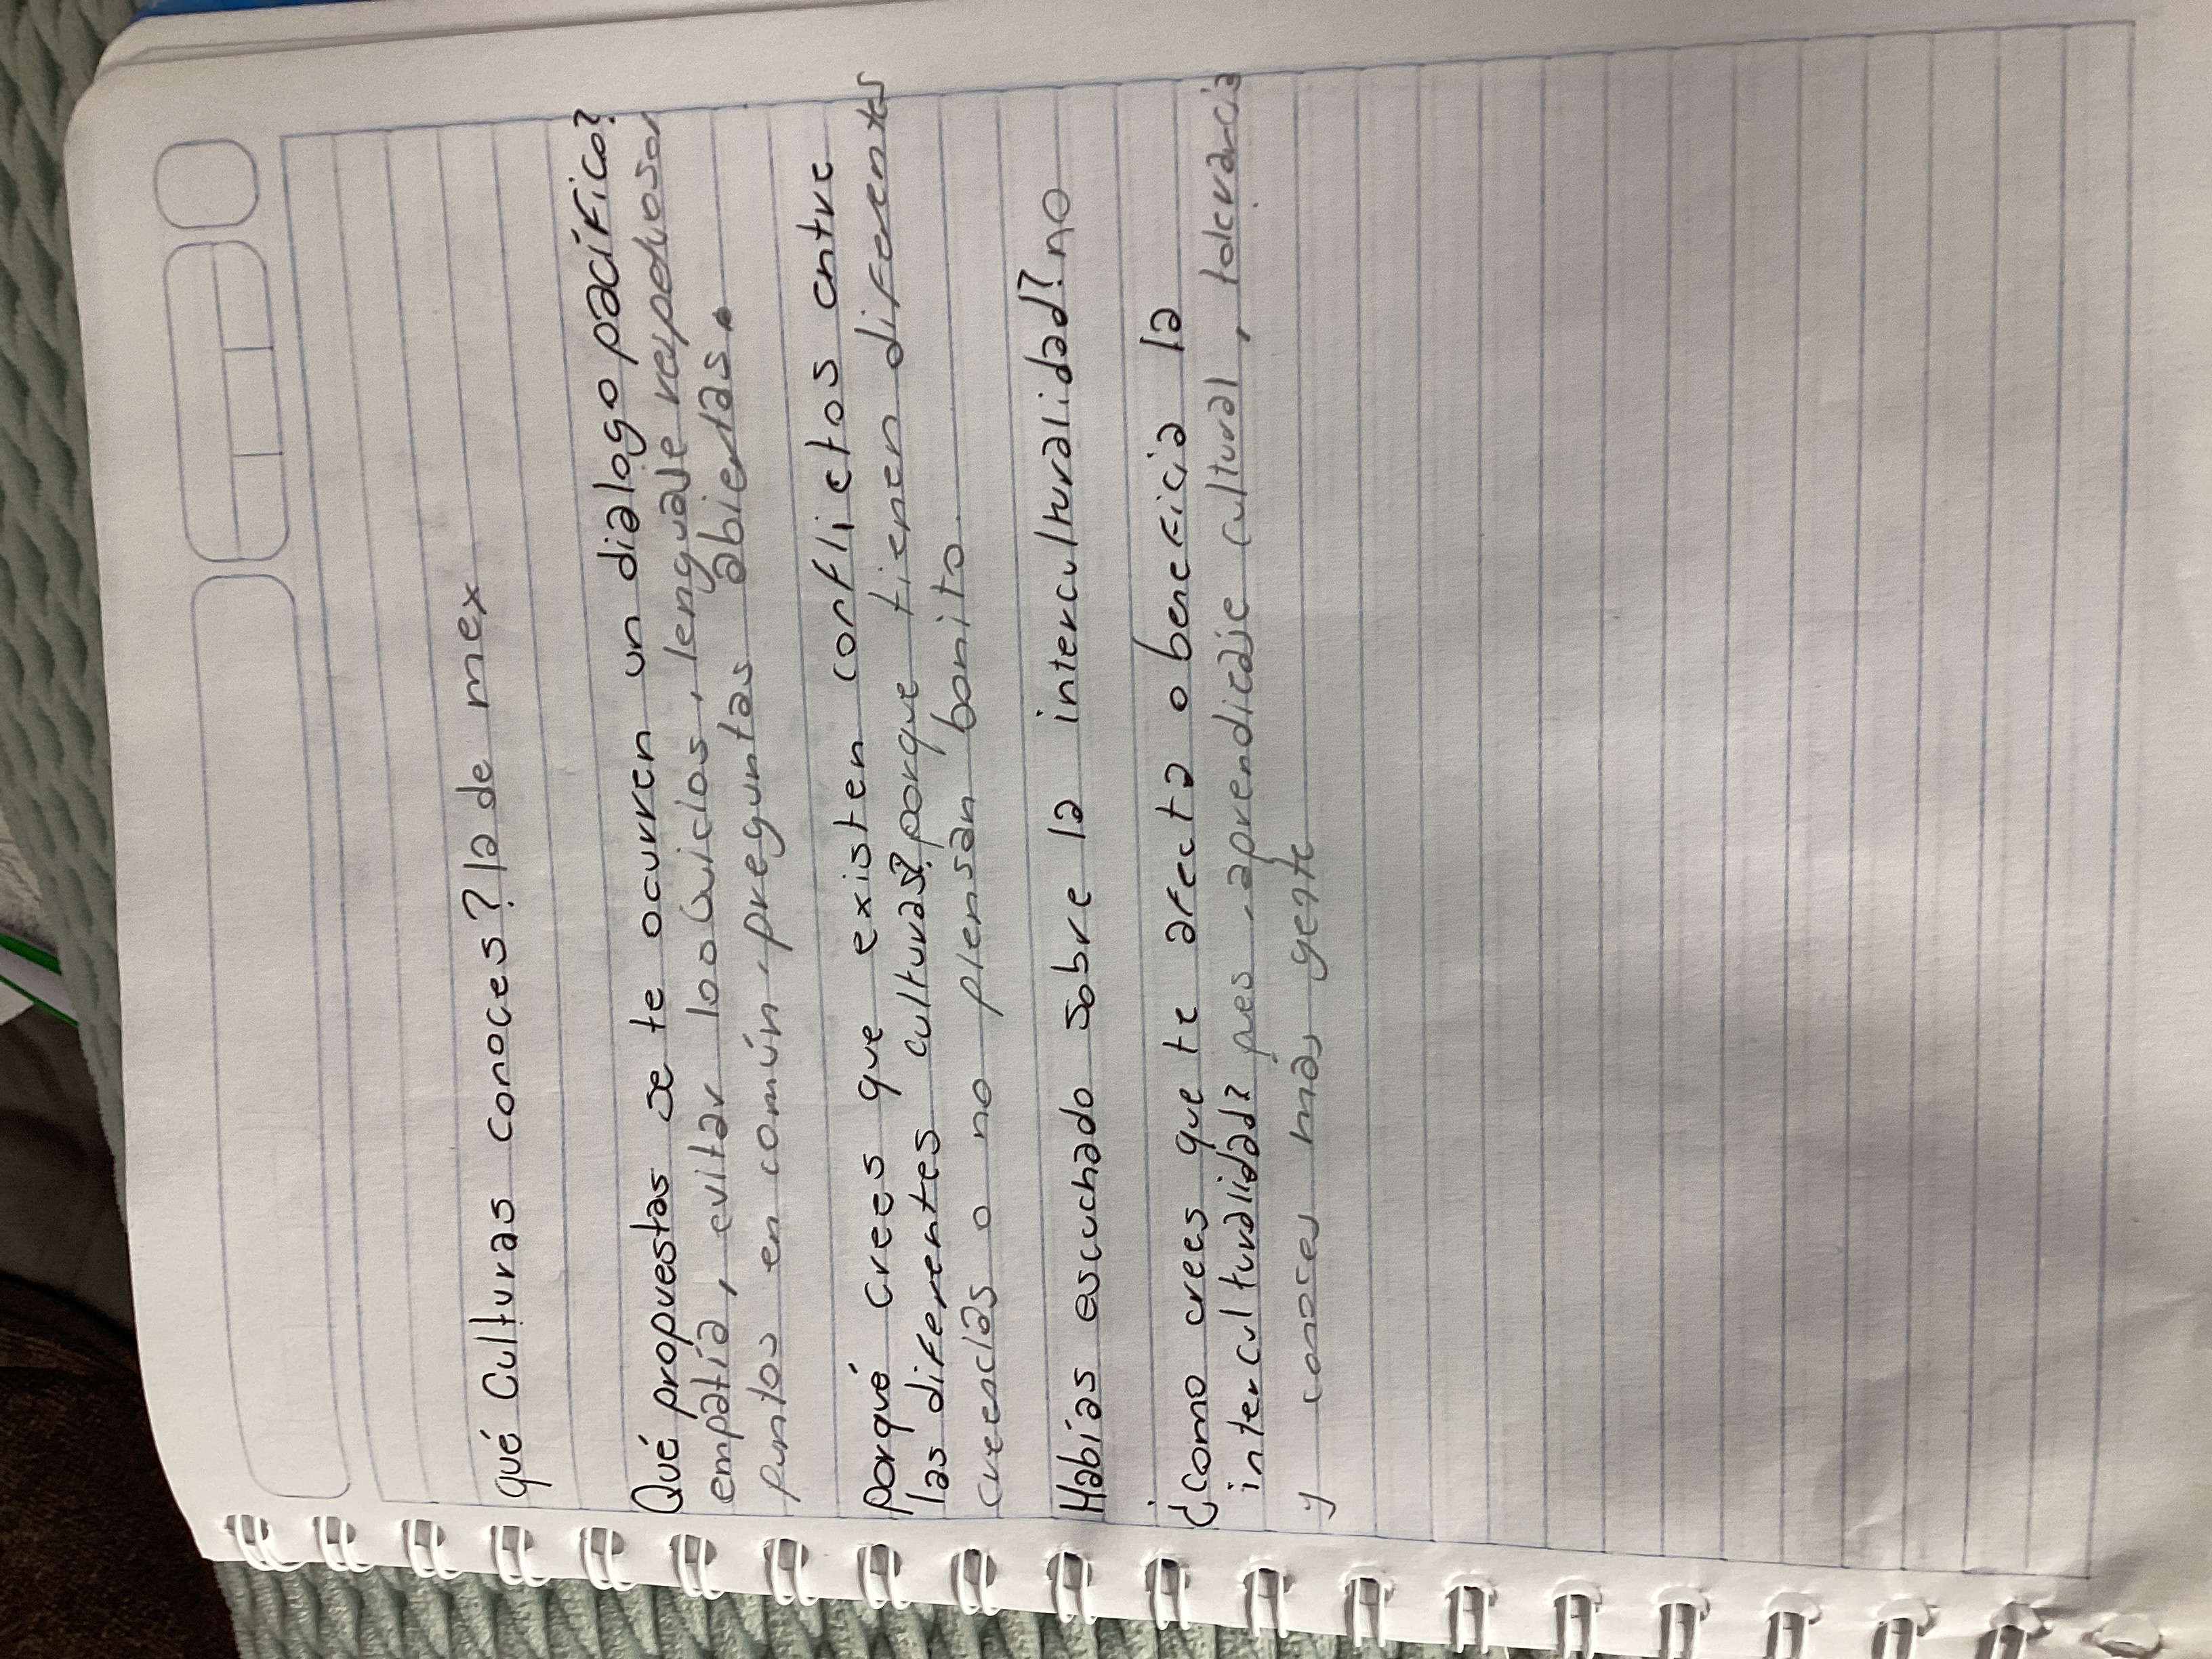 qué Culturas conoces? la de mex
Qué propuestas se te ocurren un dialogo pacífico?
empatía, evitar los Juicios, lenguaje respetuoso,
puntos en común, preguntas abiertas.
porqué crees que existen conflictos entre
las diferentes culturas? porque tienen diferentes
creencias o no piensan bonito.
Habías escuchado sobre la interculturalidad? no
¿como crees que te afecta o beneficia la
interculturalidad? pues, aprendizaje cultural, tolerancia
y conoces más gente